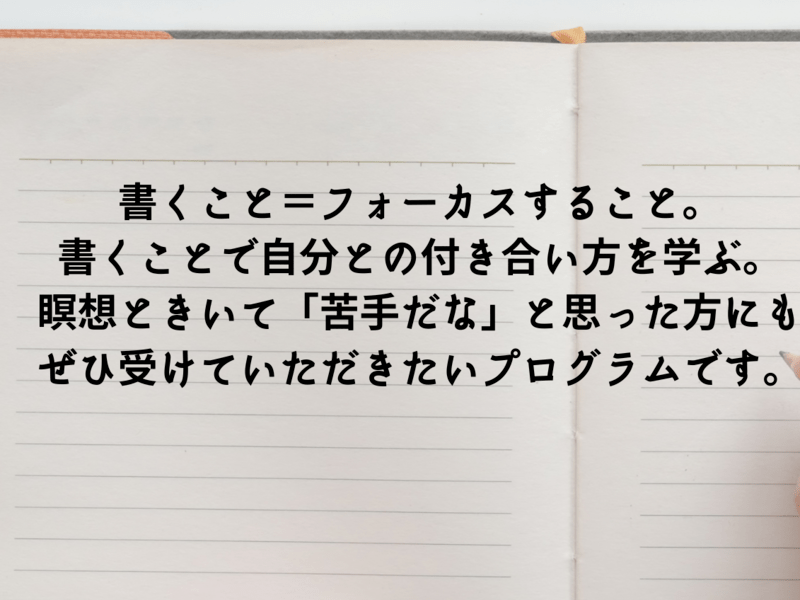 書くこと＝フォーカスすること。
書くことで自分との付き合い方を学ぶ。
瞑想ときいて「苦手だな」と思った方にも
ぜひ受けていただきたいプログラムです。